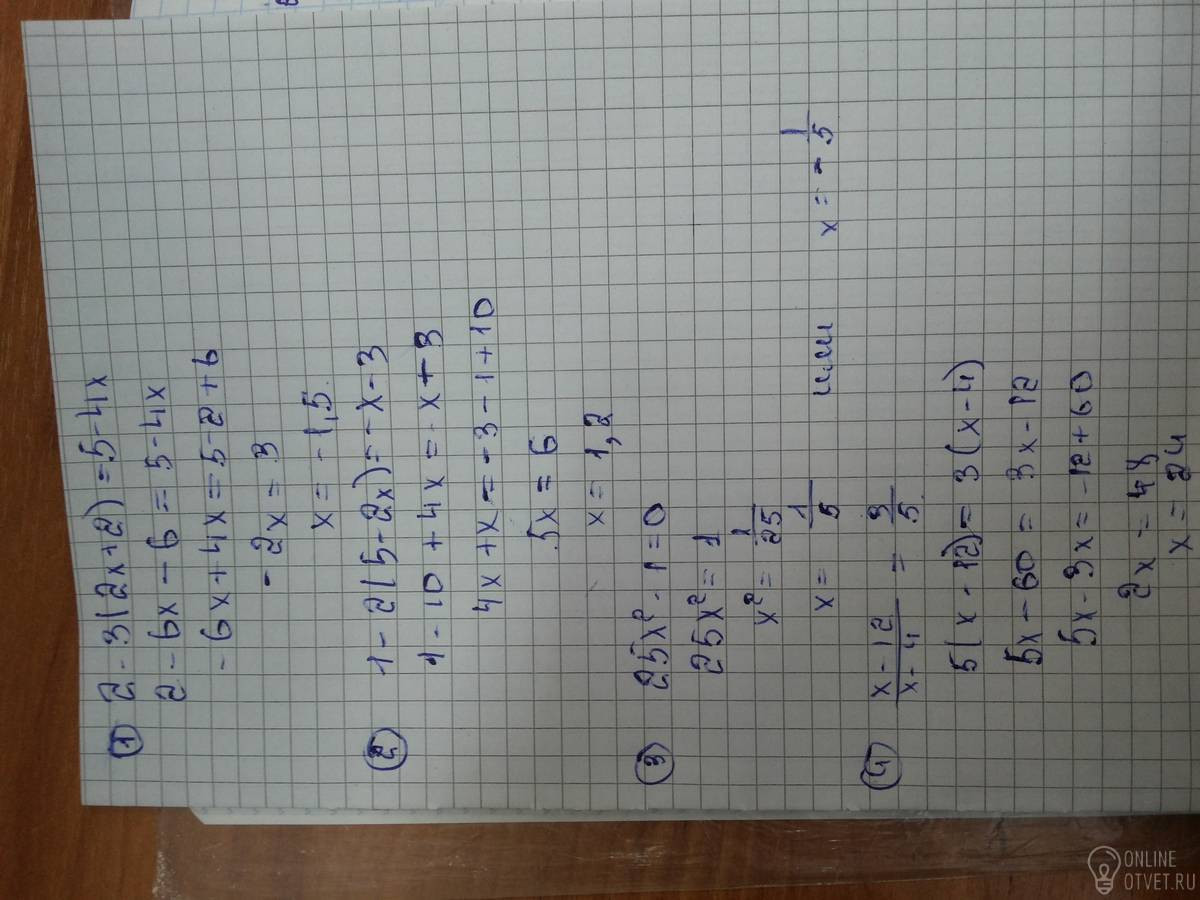 ① 2 - 3(2x+2) = 5-4x
2 - 6x - 6 = 5-4x
- 6x + 4x = 5-2+6
- 2x = 3
x = -1,5.
② 1 - 2(5-2x) = -x-3
1 - 10 + 4x = -x+3
4x + x = -3 - 1 + 10
5x = 6
x = 1,2
③ 25x² - 1 = 0
25x² = 1
x² = 1/25
x = 1/5 или x = - 1/5
④ x-12/x-4 = 3/5
5(x-12) = 3(x-4)
5x-60 = 3x-12
5x-3x = -12+60
2x = 48
x = 24
ONLINE
OTVET.RU